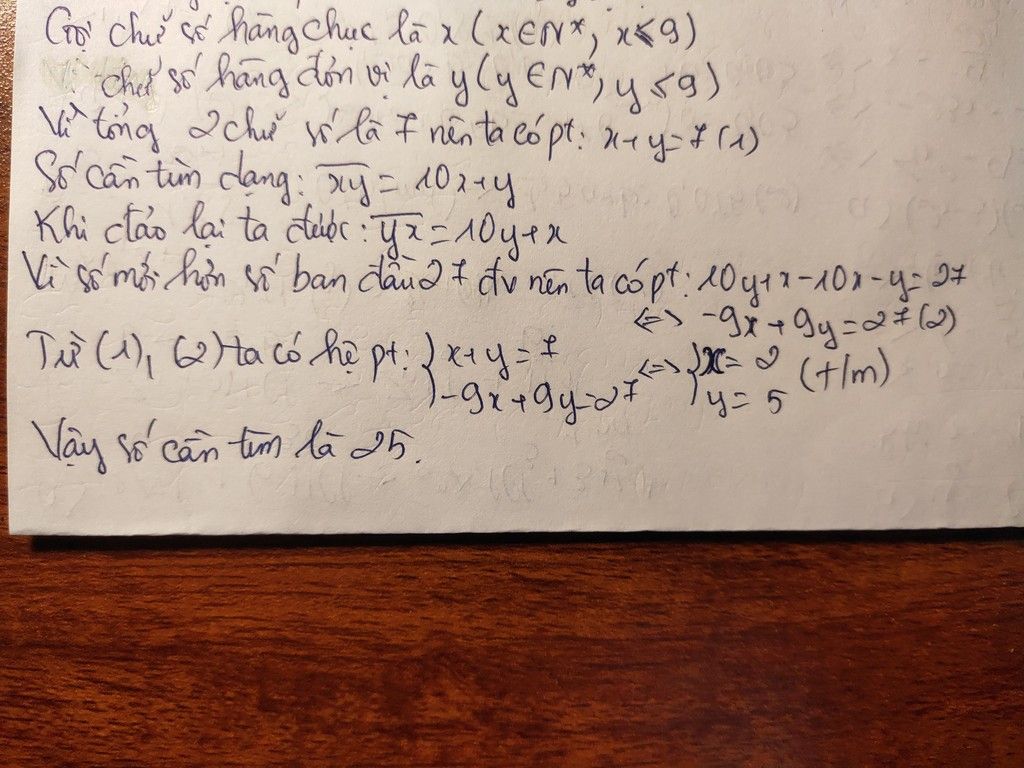 Gọi chữ số hàng chục là x (x∈N*, x≤9)
chữ số hàng đơn vị là y (y∈N*, y≤9)
Vì tổng 2 chữ số là 7 nên ta có pt: x+y=7 (1)
Số cần tìm dạng: x̅y̅ = 10x+y
Khi đảo lại ta được: y̅x̅ = 10y+x
Vì số mới hơn số ban đầu 27 đv nên ta có pt: 10y+x-10x-y=27
<=> -9x+9y=27 (2)
Từ (1), (2) ta có hệ pt: { x+y=7 <=> { x=2 (t/m)
-9x+9y=27 y=5
Vậy số cần tìm là 25.